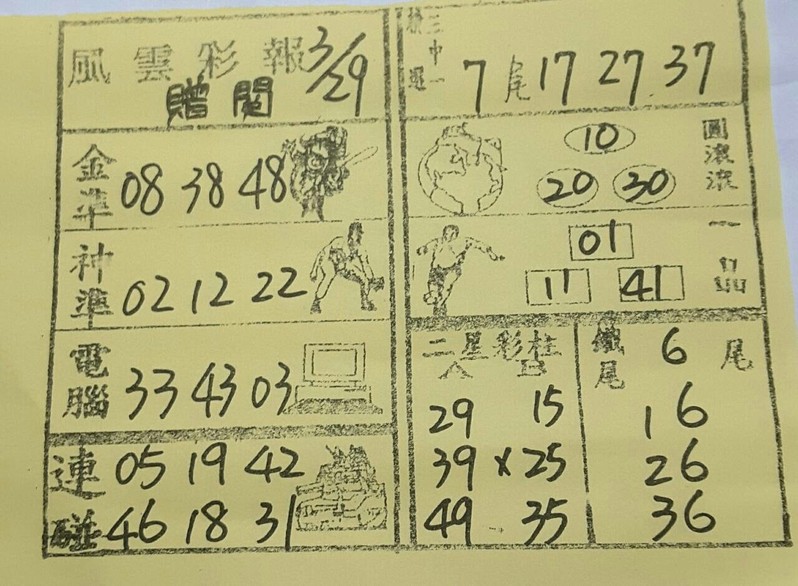 風雲彩報 3/29
贈閱
金準 08 38 48
神準 02 12 22
電腦 33 43 03
連碰 05 19 42
46 18 31
三中一
7尾 17 27.37
圓滾滾
10
20 30
一品
01
11 41
二星彩柱
A B
29 15
39 x 25
49 35
鐵尾 6尾
16
26
36